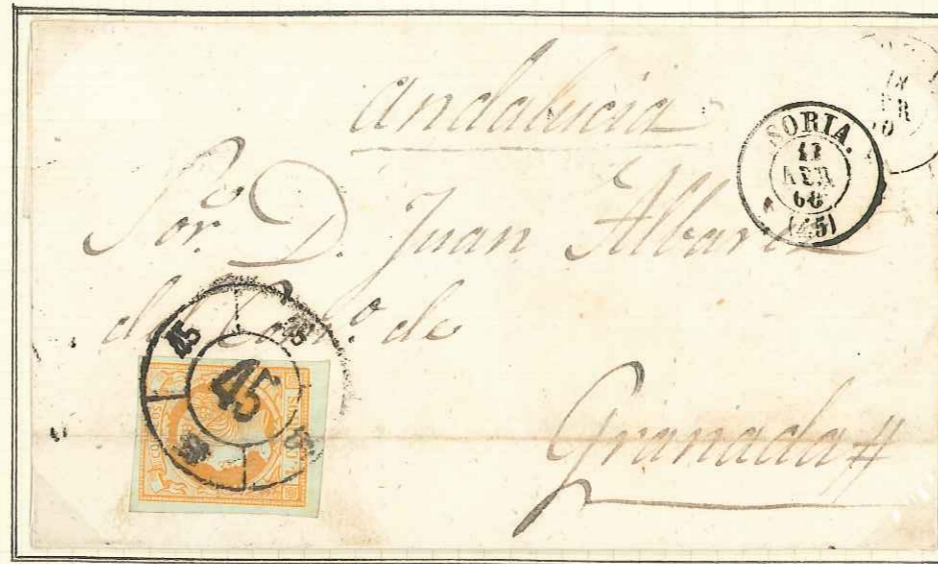 Andalucia
SORIA.
11
ABR
60
(45)
Sor. D. Juan Albarez
del Com.º de
45
45
45
45
45
Granada